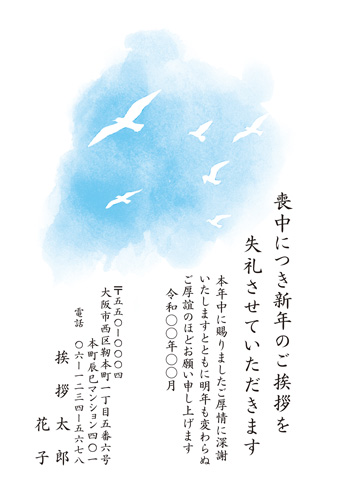 喪中につき新年のご挨拶を
失礼させていただきます
本年中に賜りましたご厚情に深謝
いたしますとともに明年も変わらぬ
ご厚誼のほどお願い申し上げます
令和〇〇年〇〇月
〒五五〇-〇〇〇四
大阪市西区靭本町一丁目五番六号
本町辰巳マンション四〇一
電話 〇六-一二三四-五六七八
挨拶太郎
花子